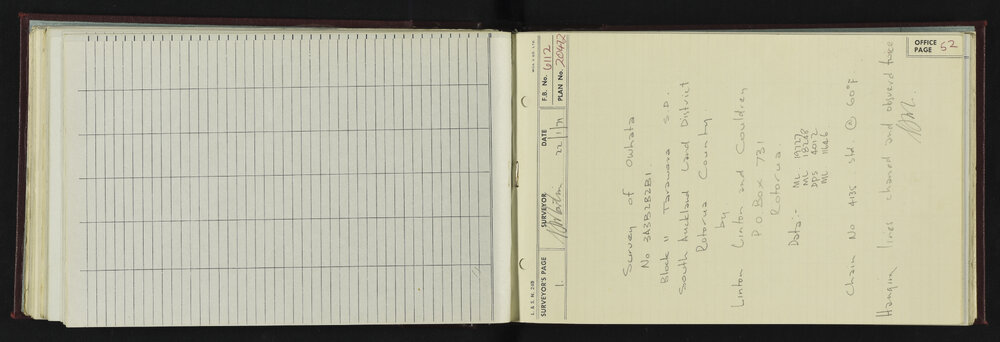 OFFICE PAGE 52
L. & S. N. 249
SURVEYOR'S PAGE 1.
SURVEYOR
DATE 22/1/71
F.B. No. 6112
PLAN No. 20472
Survey of Owhata
No 3A3B2B2B1
Block II Tarawera S.D.
South Auckland Land District
Rotorua County
by
Linton Linton and Couldrey
P.O. Box 731
Rotorua
Data:-
ML 19727/8
ML 18248
DPS 4012
ML 11646
Chain No 4135 std. @ 60°F
Hanging lines chained and observed twice